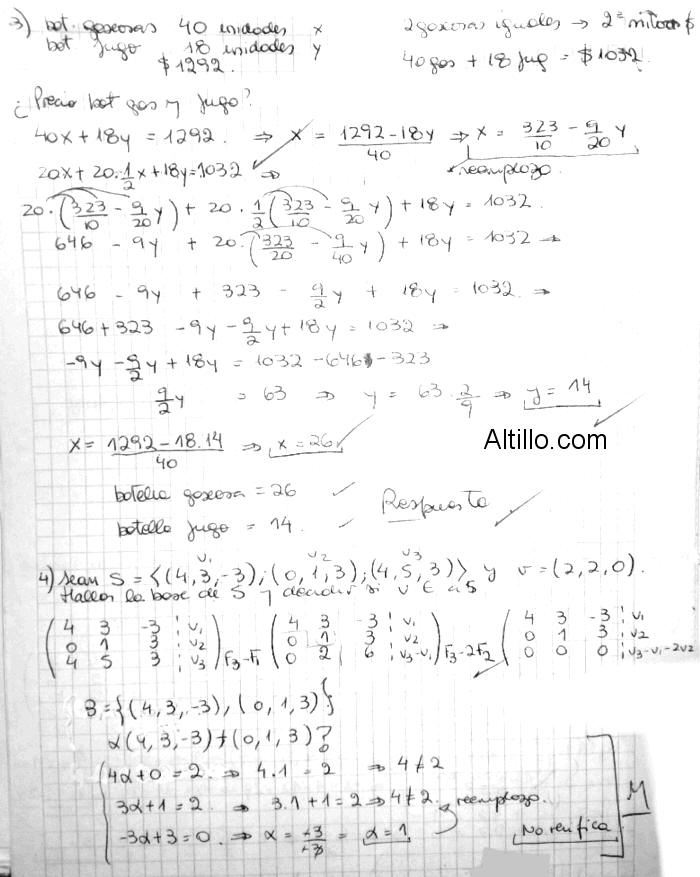 3) bot. gaseosas 40 unidades x
bot jugo 18 unidades y
$1292.
2 gaseosas iguales → 2ª mitad $
40 gas + 18 jug = $1032.
¿Precio bot gas y jugo?
40x + 18y = 1292. ⇒ x = (1292 - 18y)/40 ⇒ x = 323/10 - 9/20 y
20x + 20·1/2 x + 18y = 1032 ⇒ reemplazo.
20·(323/10 - 9/20 y) + 20·1/2 (323/10 - 9/20 y) + 18y = 1032.
646 - 9y + 20·(323/20 - 9/40 y) + 18y = 1032 ⇒
646 - 9y + 323 - 9/2 y + 18y = 1032. ⇒
646 + 323 - 9y - 9/2 y + 18y = 1032 ⇒
-9y - 9/2 y + 18y = 1032 - 646 - 323
9/2 y = 63 ⇒ y = 63·2/9 ⇒ y = 14
x = (1292 - 18.14)/40 ⇒ x = 26
Altillo.com
botella gaseosa = 26 ✓
botella jugo = 14. ✓
Respuesta
v1 v2 v3
4) Sean S = ⟨(4,3,-3); (0,1,3); (4,5,3)⟩ y v = (2,2,0).
Hallar la base de S y decidir si v ∈ a S
4 3 -3 | v1
0 1 3 | v2
4 5 3 | v3
F3-F1
4 3 -3 | v1
0 1 3 | v2
0 2 6 | v3-v1
F3-2F2
4 3 -3 | v1
0 1 3 | v2
0 0 0 | v3-v1-2v2
B = {(4,3,-3), (0,1,3)}
α(4,3,-3) + (0,1,3)?
4α + 0 = 2. ⇒ 4.1 = 2 ⇒ 4 ≠ 2
3α + 1 = 2. ⇒ 3.1 + 1 = 2 ⇒ 4 ≠ 2. reemplazo.
-3α + 3 = 0. ⇒ α = -3/-3 = α = 1
No verifica
M